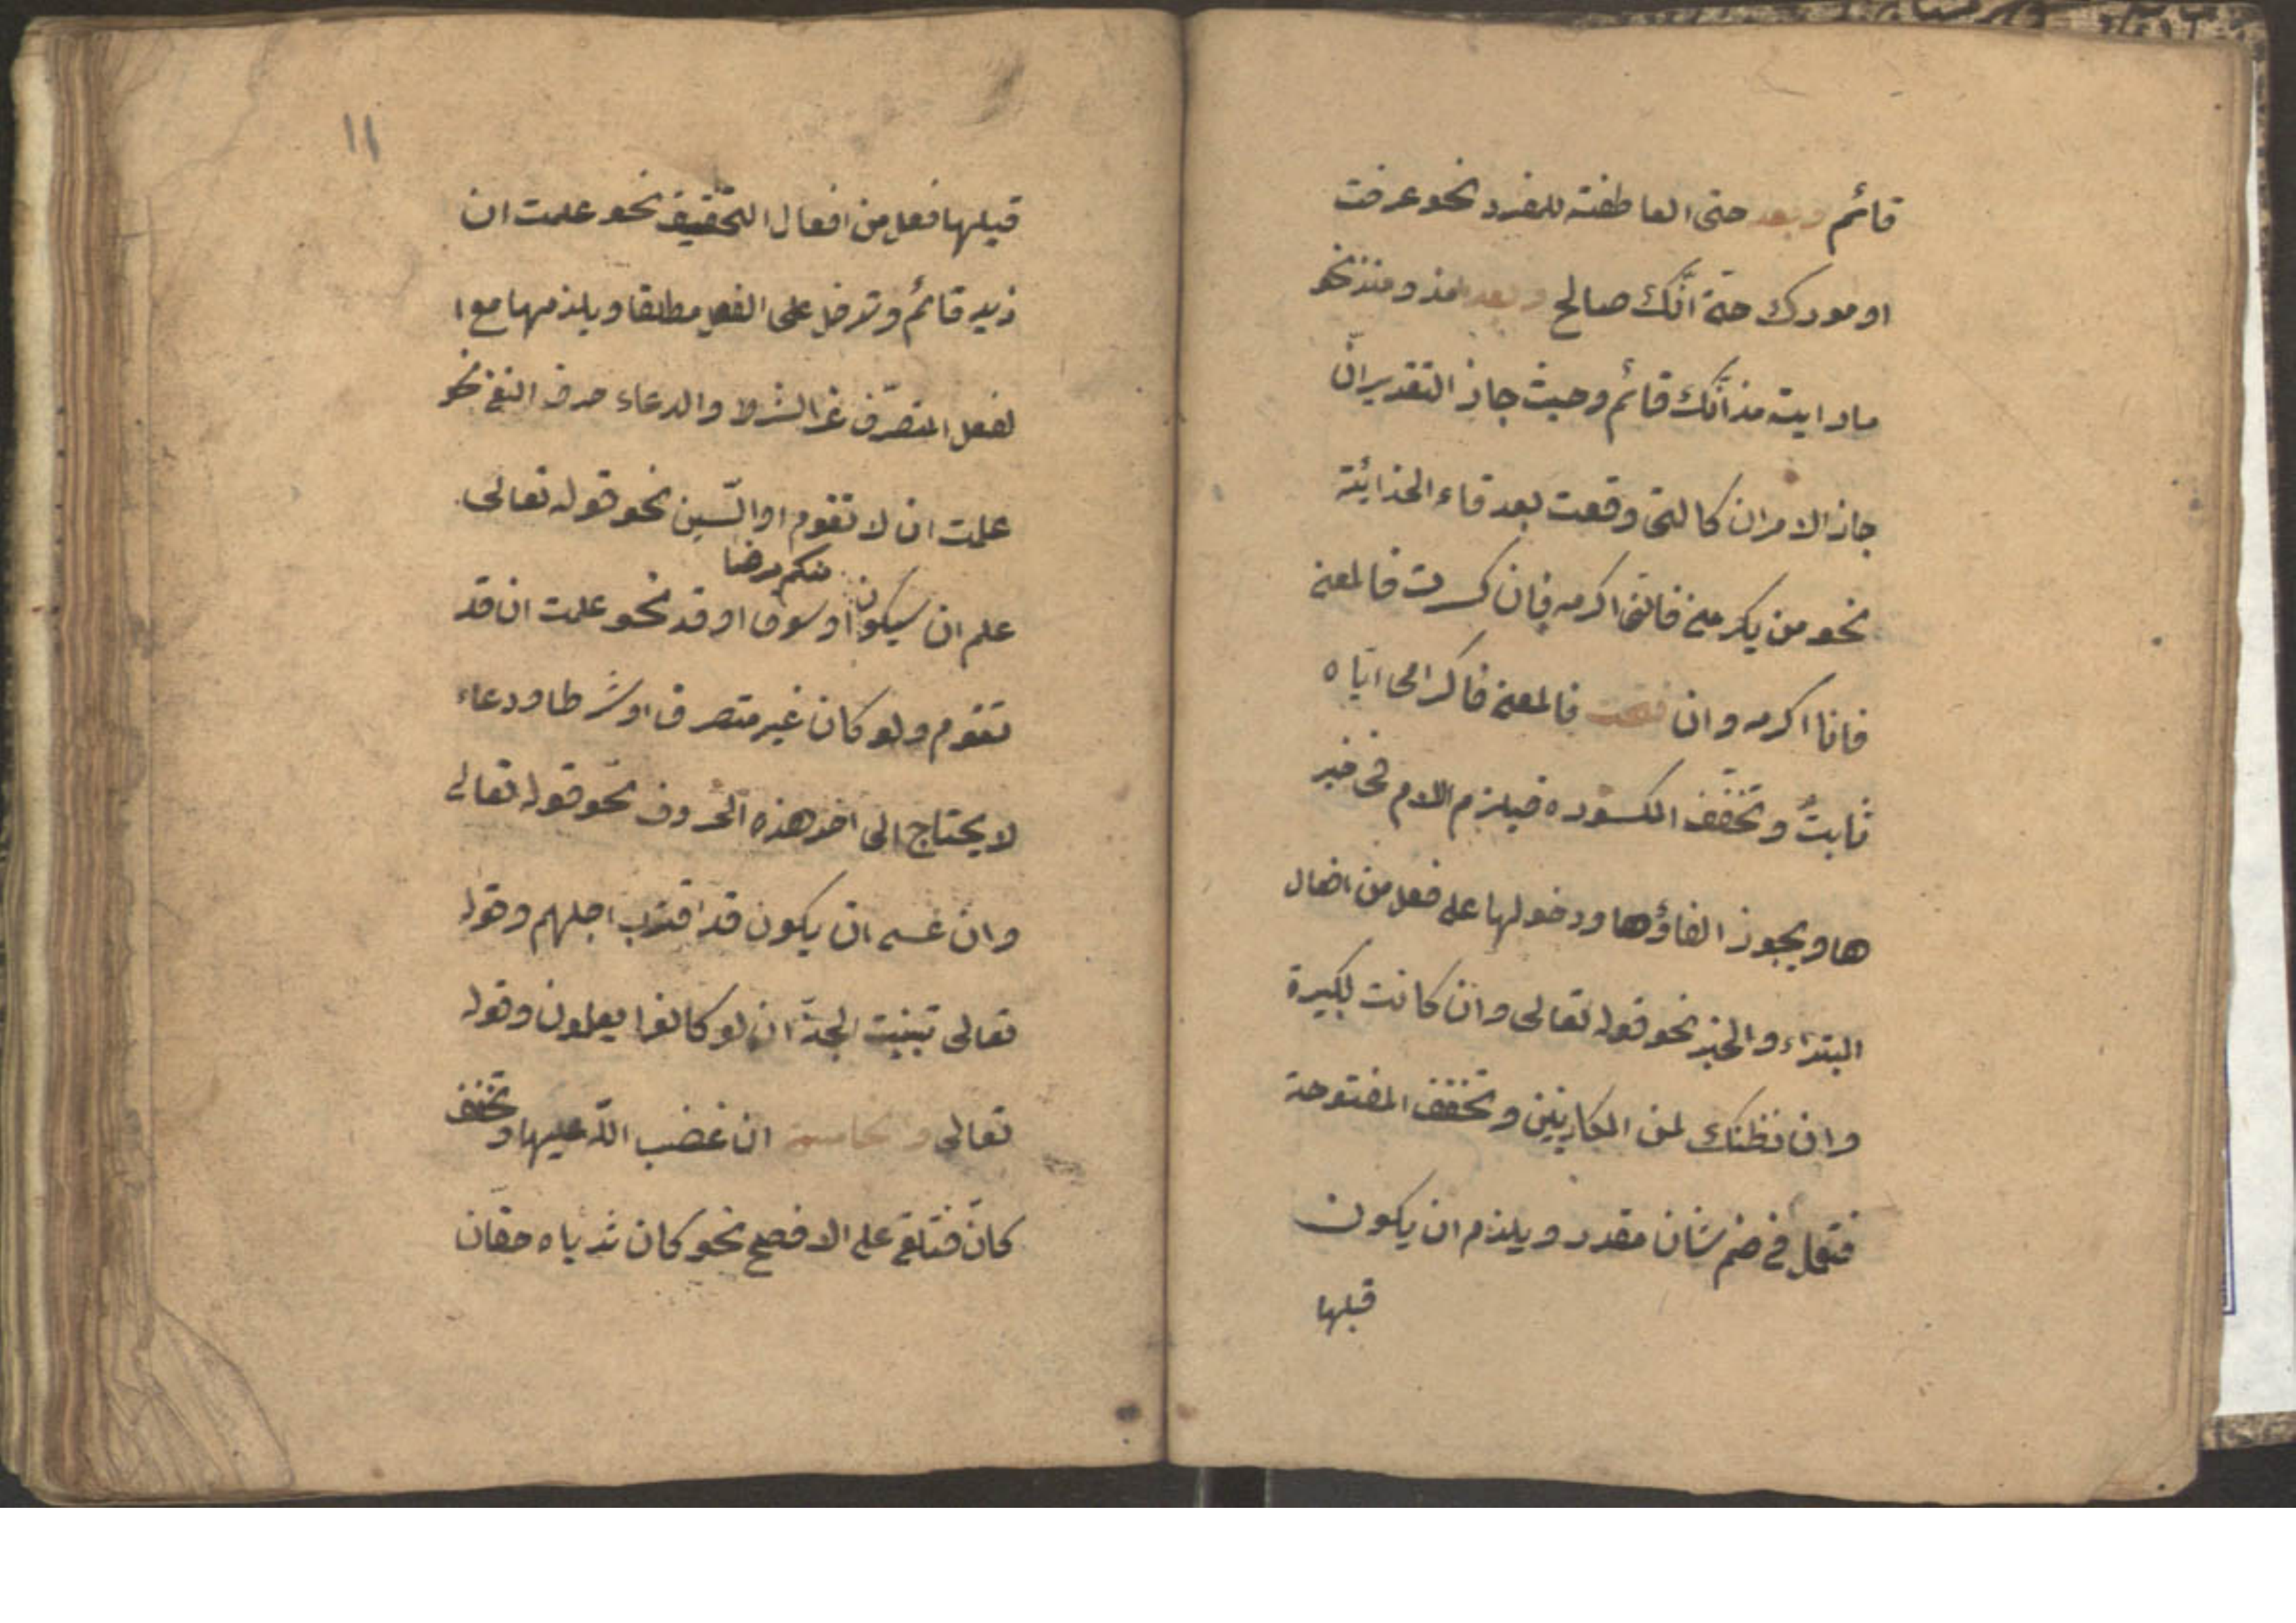 قائم وبعد حتى العاطفته للمفرد نحو عرفت
امورك حتى انّك صالح وبعد مذ ومنذ نحو
مارايته مذ انّك قائم وحيث جاز التقديران
جاز الامران كالتى وقعت بعد فاء الجزائية
نحو من يكرمنى فانى اكرمه فان كسرت فالمعنى
فانا اكرمه وان فتحت فالمعنى فاكرامى ايّاه
ثابتٌ وتخفف المكسوره فيلزم اللام فى خبر
هاويجوز الغاؤها ودخولها على فعل من افعال
المبتداء والخبر نحو قوله تعالى وان كانت لكبيرة
وان نظنك لمن الكاذبين وتخفف المفتوحة
فتعمل فى ضم شان مقدر ويلزم ان يكون
قبلها
١١
قبلها فعل من افعال التحقيق نحو علمت ان
زيد قائم وتدخل على الفعل مطلقا ويلزمها مع ا
لفعل المتصرّف غير الشرط والدعاء حرف النفى نحو
علمت ان لا تقوم اوالسّين نحو قوله تعالى
منكم مرضا
علم ان سيكون اوسوف اوقد نحو علمت ان قد
تقوم ولو كان غير متصرف اوشرطا ودعاء
لا يحتاج الى احد هذه الحروف نحو قوله تعالى
وان عسى ان يكون قد اقترب اجلهم وقوله
تعالى تبينت الجنّ ان لو كانوا يعلمون وقوله
تعالى والخامسة ان غضب اللّه عليها وتخفف
كانّ فتلغى على الافصح نحو كان ثدياه حقان